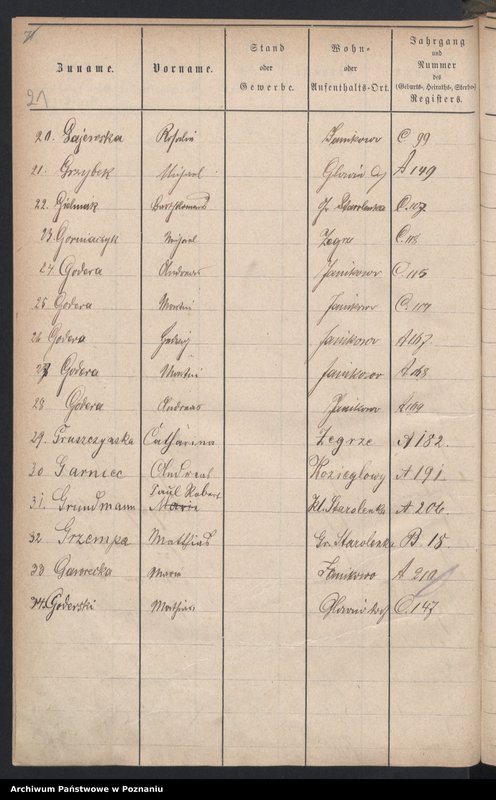 Zuname. Vorname. Stand oder Gewerbe. Wohn- oder Aufenthalts-Ort. Jahrgang und Nummer des (Geburts-, Heiraths-, Sterbe-) Registers.
21
20. Gajewska Rosalie Janikowo C. 99
21. Grzybek Michael Glowno A 149
22. Gielniak Bartholomeus Gr. Starolenka C. 107
23. Gorniaczyk Michael Zegrze C. 113
24. Godera Andreas Janikowo C. 115
25 Godera Martin Janikowo C. 117
26 Godera Hedwig Janikowo A 167
27 Godera Martin Janikowo A 168
28 Godera Andreas Janikowo A 169
29. Gruszczynska Catharina Zegrze A 182.
30 Garniec Andreas Kozieglowy A 191.
31. Grundmann Paul Robert Marie Kl. Starolenka A 206.
32 Grzempa Matthias Gr. Starolenka B 15.
33 Gaworecka Marie Janikowo A 210
34. Goderski Mathias Glowno C. 147
Archiwum Państwowe w Poznaniu